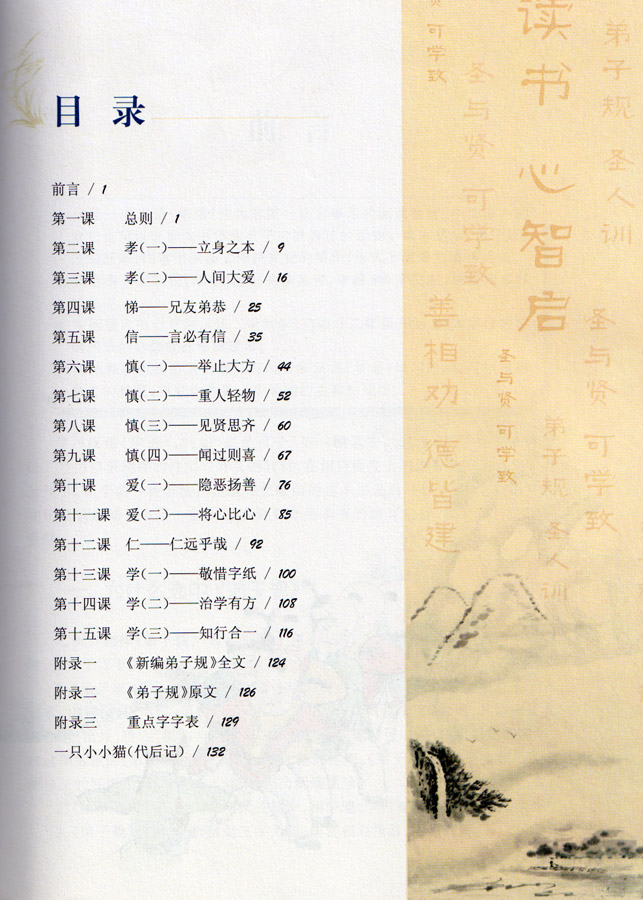 目 录
前言 / 1
第一课 总则 / 1
第二课 孝(一)——立身之本 / 9
第三课 孝(二)——人间大爱 / 16
第四课 悌——兄友弟恭 / 25
第五课 信——言必有信 / 35
第六课 慎(一)——举止大方 / 44
第七课 慎(二)——重人轻物 / 52
第八课 慎(三)——见贤思齐 / 60
第九课 慎(四)——闻过则喜 / 67
第十课 爱(一)——隐恶扬善 / 76
第十一课 爱(二)——将心比心 / 85
第十二课 仁——仁远乎哉 / 92
第十三课 学(一)——敬惜字纸 / 100
第十四课 学(二)——治学有方 / 108
第十五课 学(三)——知行合一 / 116
附录一 《新编弟子规》全文 / 124
附录二 《弟子规》原文 / 126
附录三 重点字字表 / 129
一只小小猫(代后记) / 132
弟子规 圣人训
读书 心智启
圣与贤 可学致
贤 可学致
圣与贤 可学致
善相劝 德皆建
圣与贤 可学致
弟子规 圣人训